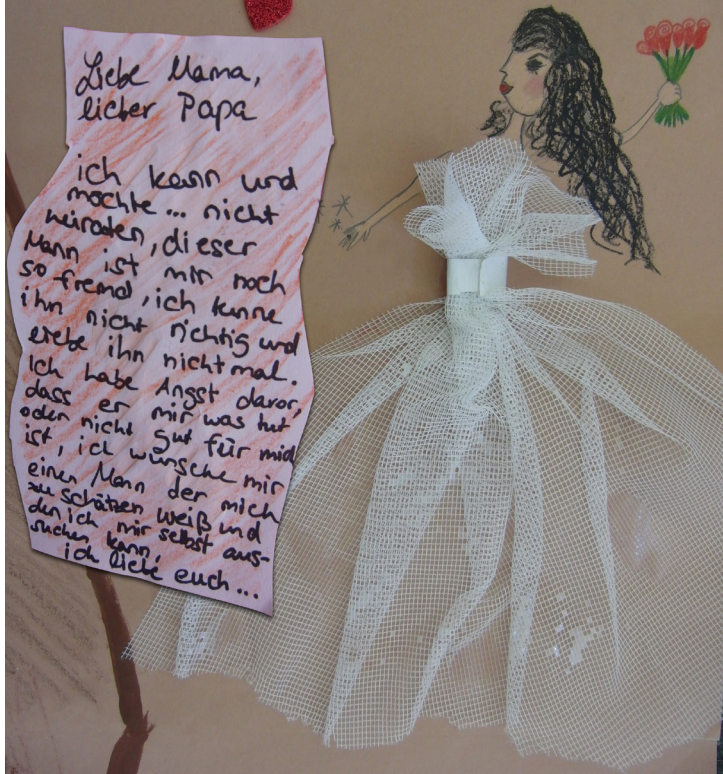 Liebe Mama,
lieber Papa
ich kann und
möchte... nicht
heiraten, dieser
Mann ist mir noch
so fremd, ich kenne
ihn nicht richtig und
liebe ihn nicht mal.
Ich habe Angst davor,
dass er mir was tut
oder nicht gut für mich
ist, ich wünsche mir
einen Mann der mich
zu schätzen weiß und
den ich mir selbst aus-
suchen kann,
ich liebe euch...